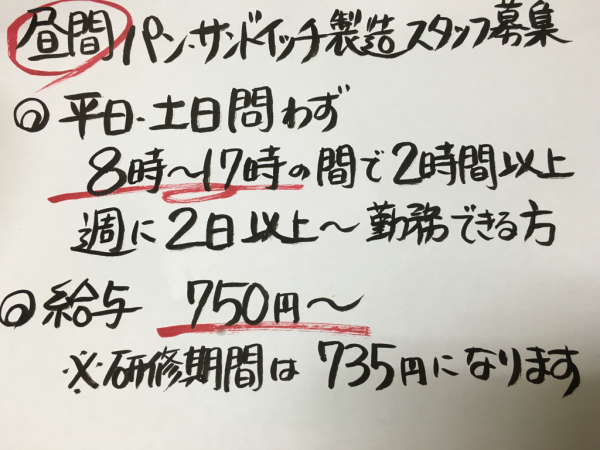 昼間 パン・サンドイッチ製造スタッフ募集
◎ 平日・土日問わず
8時〜17時の間で2時間以上
週に2日以上〜勤務できる方
◎ 給与 750円〜
※研修期間は735円になります